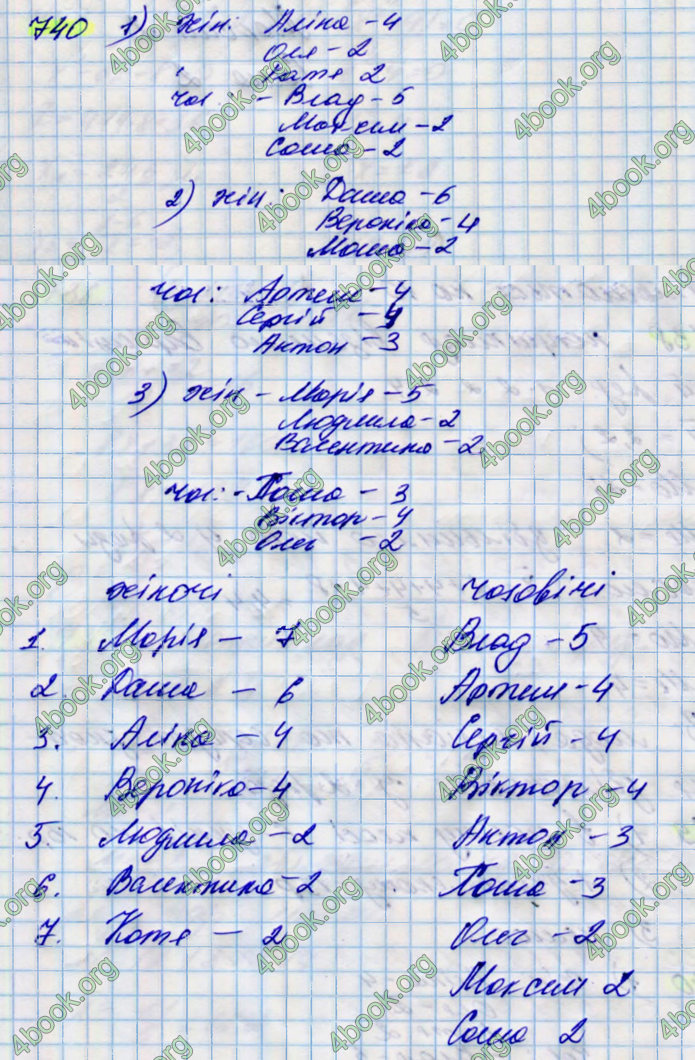 740 1) жін: Аліна - 4
Оля - 2
Катя 2
Чол. - Влад - 5
Максим - 2
Саша - 2
2) жін: Даша - 6
Вероніка - 4
Маша - 2
Чол: Артем - 4
Сергій - 4
Антон - 3
3) жін - Марія - 5
Людмила - 2
Валентина - 2
Чол: - Паша - 3
Віктор - 4
Олег - 2
жіночі чоловічі
1. Марія - 7 Влад - 5
2. Даша - 6 Артем - 4
3. Аліна - 4 Сергій - 4
4. Вероніка - 4 Віктор - 4
5. Людмила - 2 Антон - 3
6. Валентина - 2 Паша - 3
7. Катя - 2 Олег - 2
Максим 2
Саша 2
4book.org